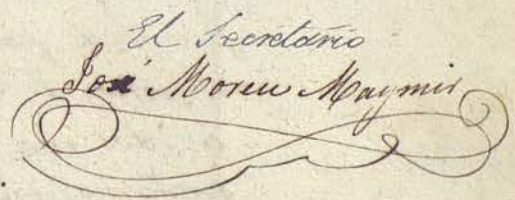 El Secretario
José Moreu Maymir